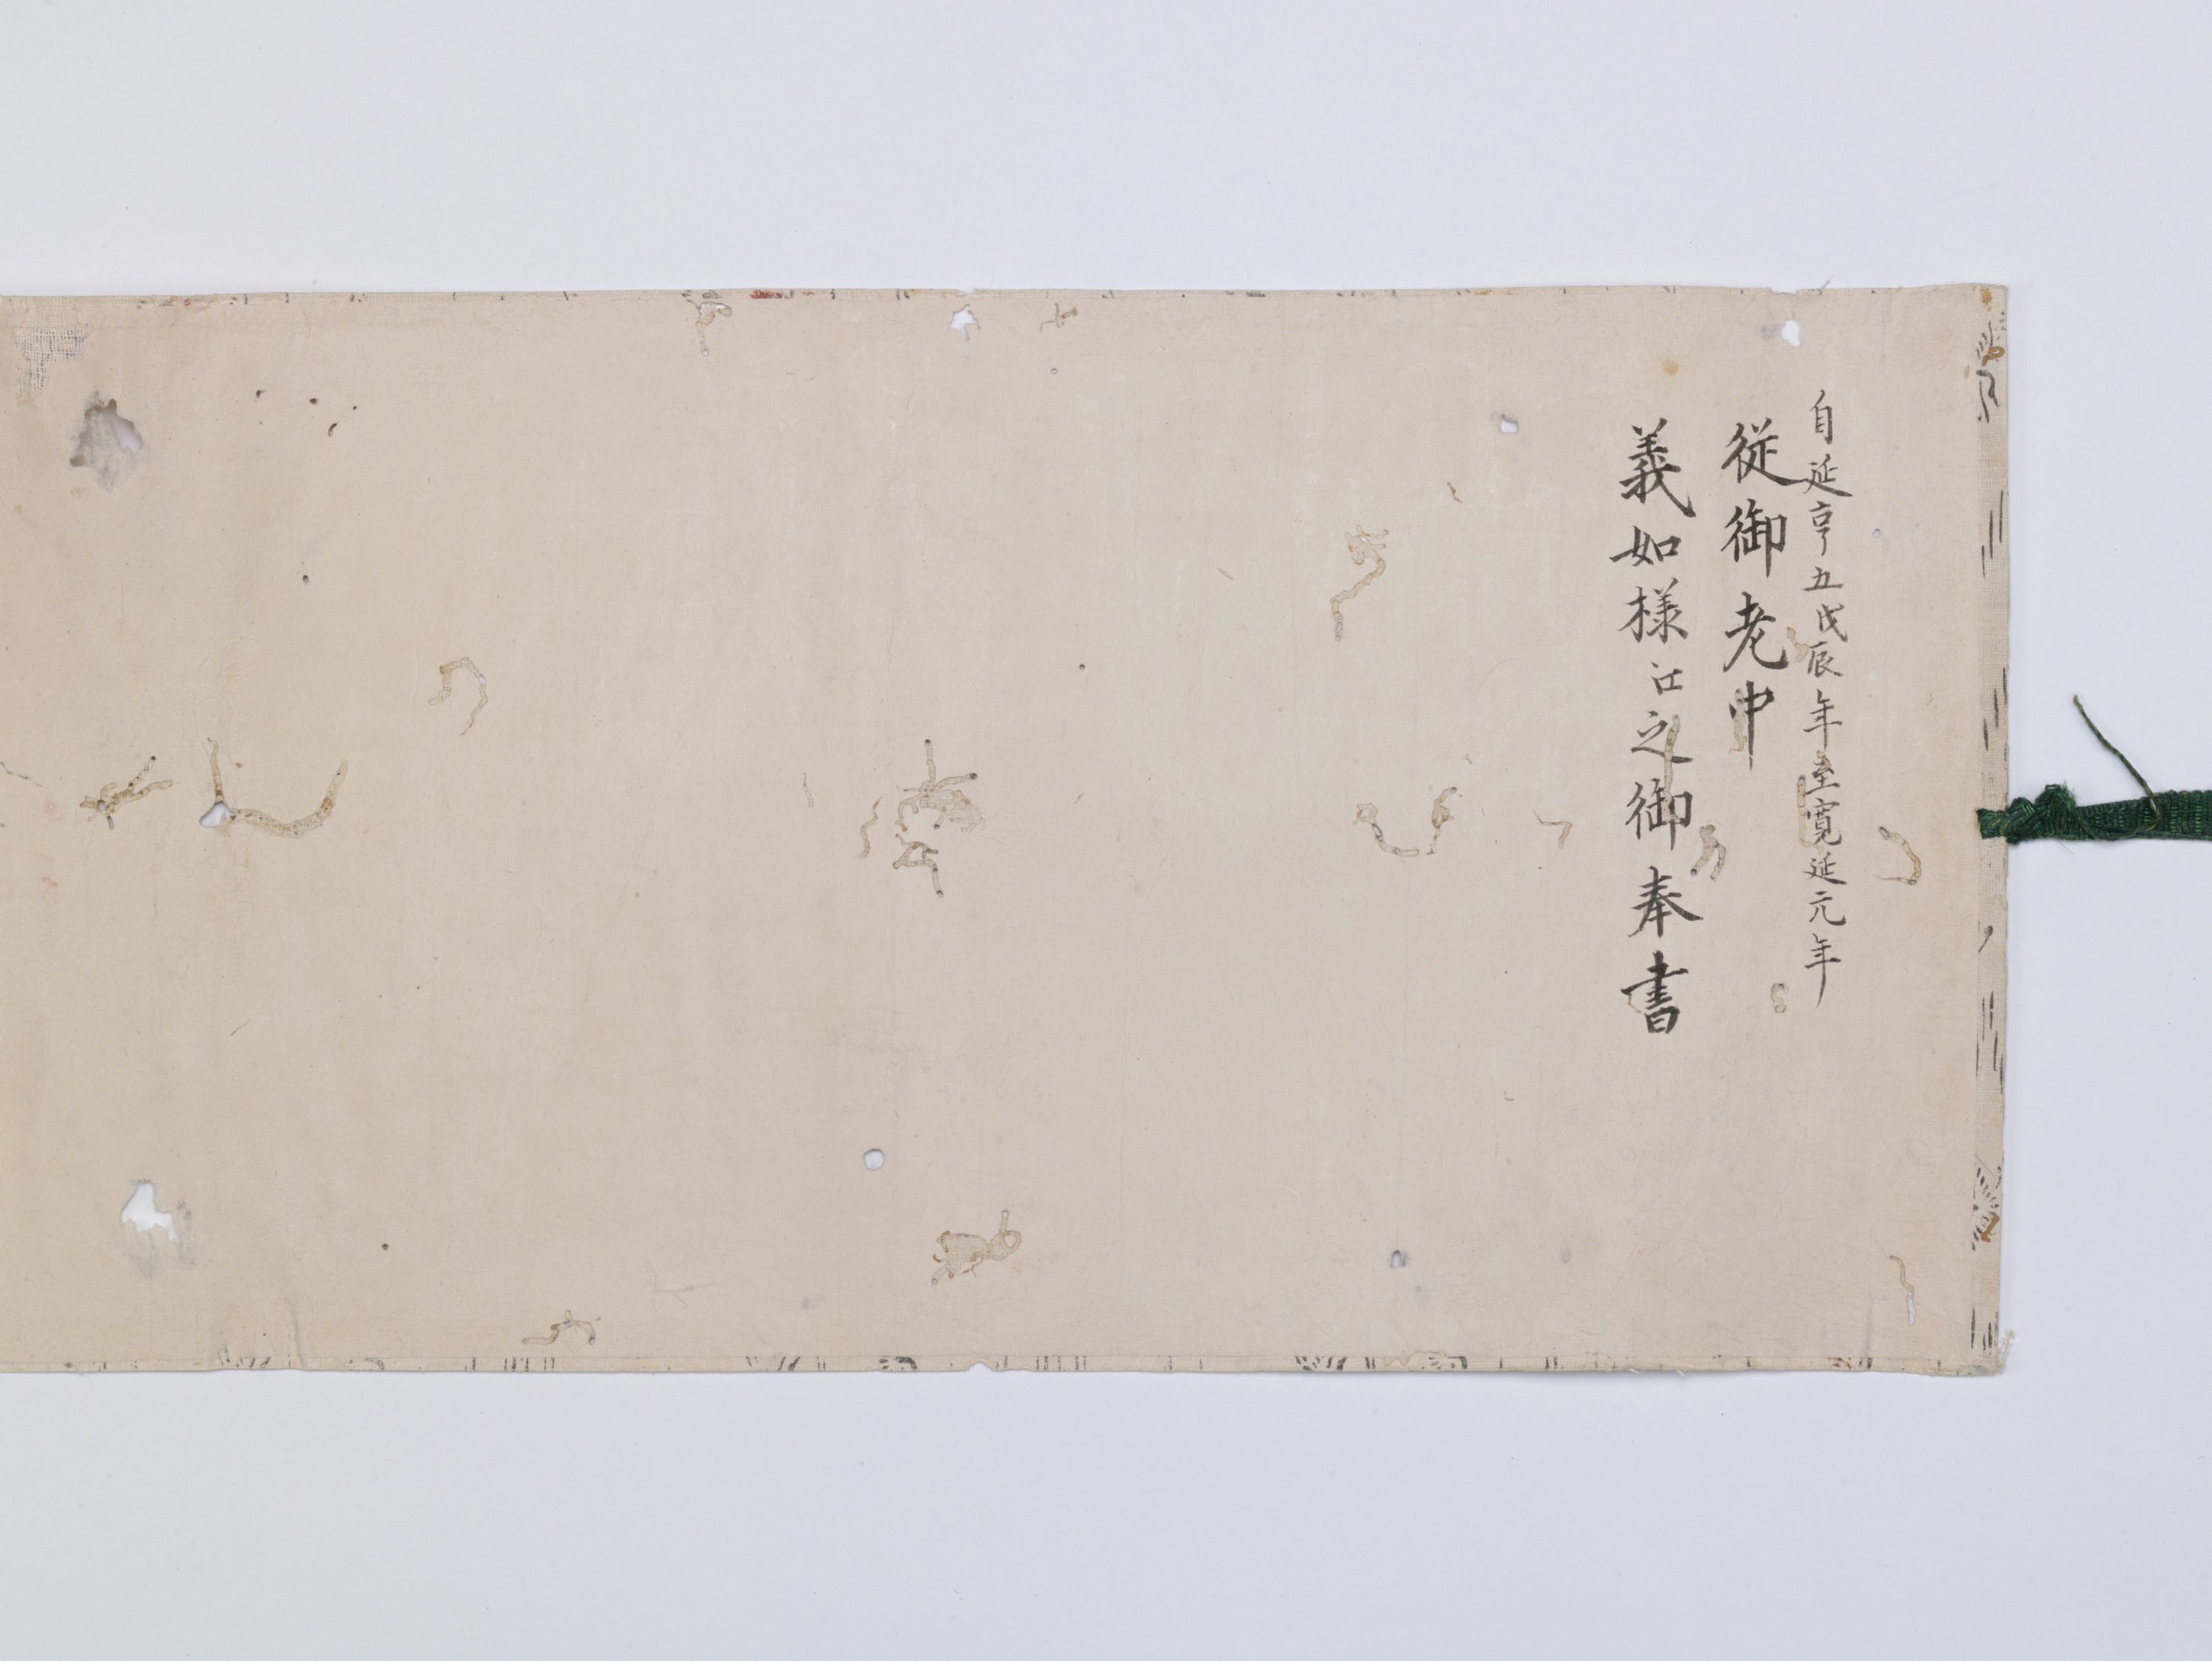 自延亨五戊辰年至寛延元年
従御老中
義如様江之御奉書